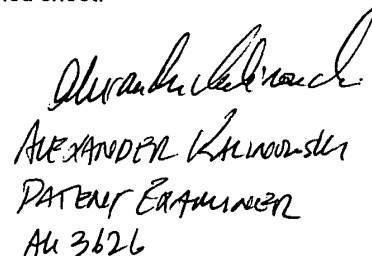 ed sheet.
Alexander Kalinowski
ALEXANDER KALINOWSKI
PATENT EXAMINER
AU 3626